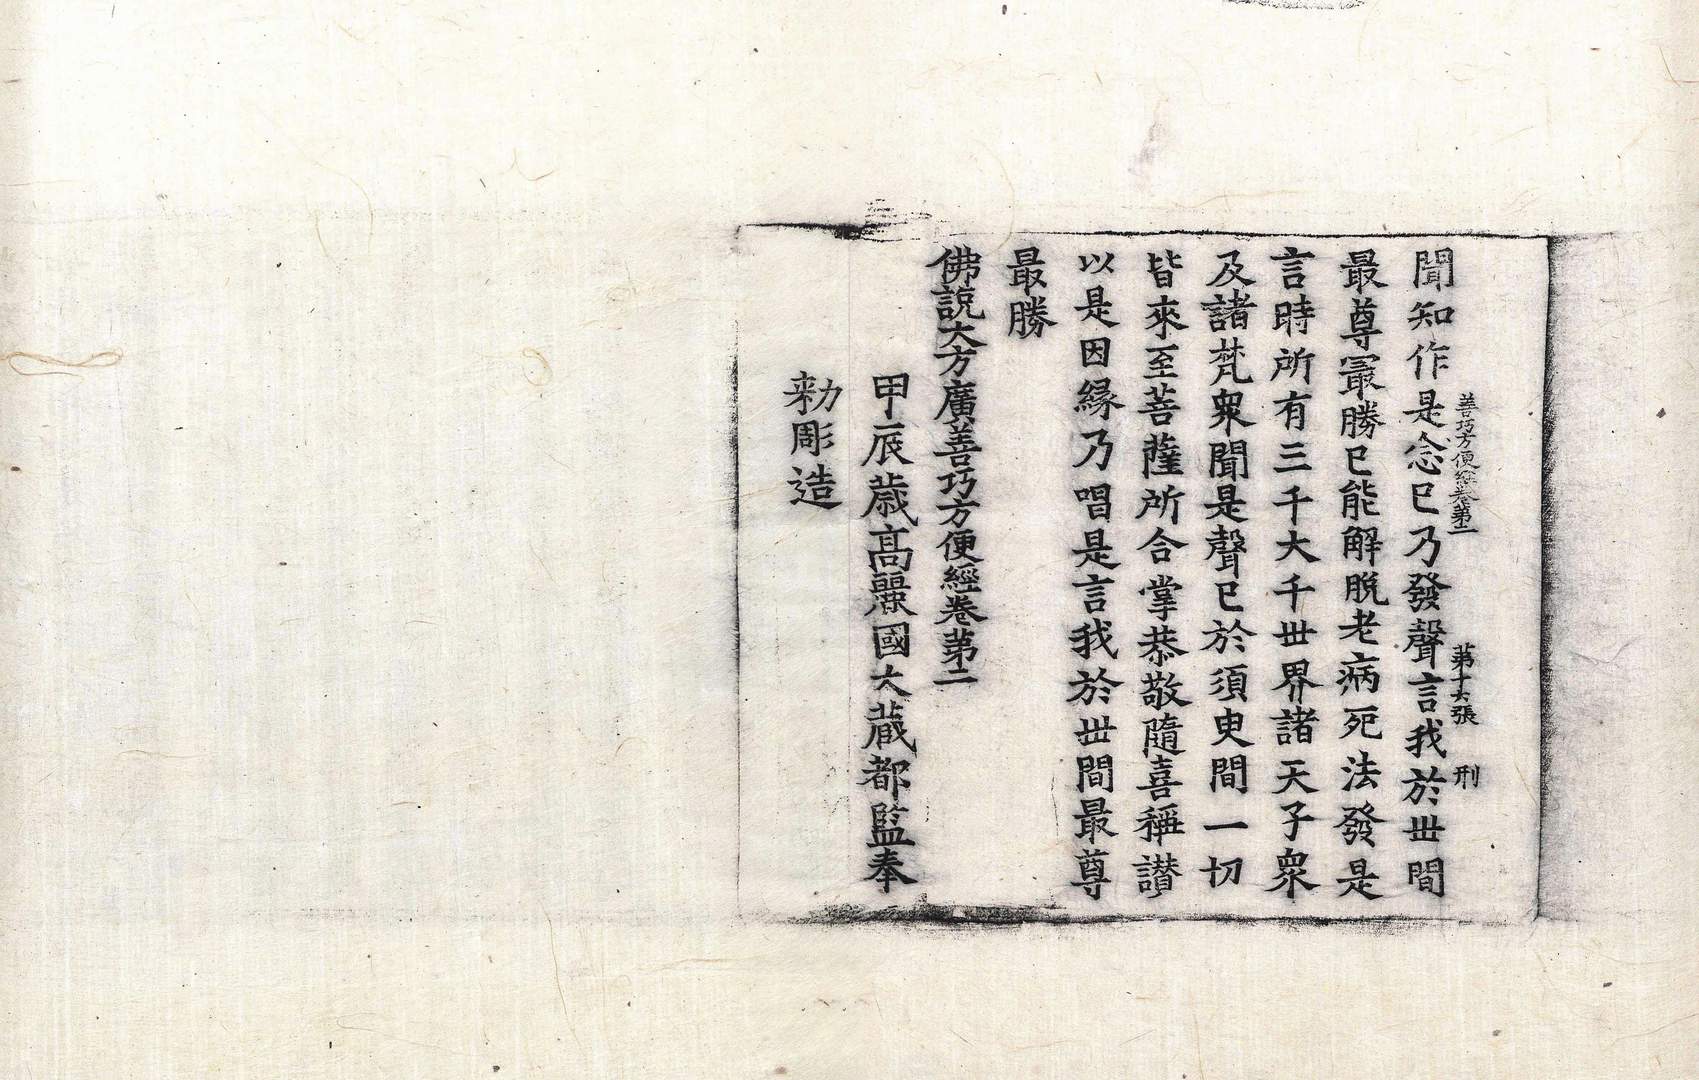 善巧方便經卷第二 第十六張 刑
聞知作是念已乃發聲言我於世間
最尊冣勝已能解脫老病死法發是
言時所有三千大千世界諸天子衆
及諸梵衆聞是聲已於須臾間一切
皆來至菩薩所合掌恭敬隨喜稱讃
以是因緣乃唱是言我於世間最尊
最勝
佛說大方廣善巧方便經卷第二
甲辰歲高麗國大藏都監奉
勅彫造